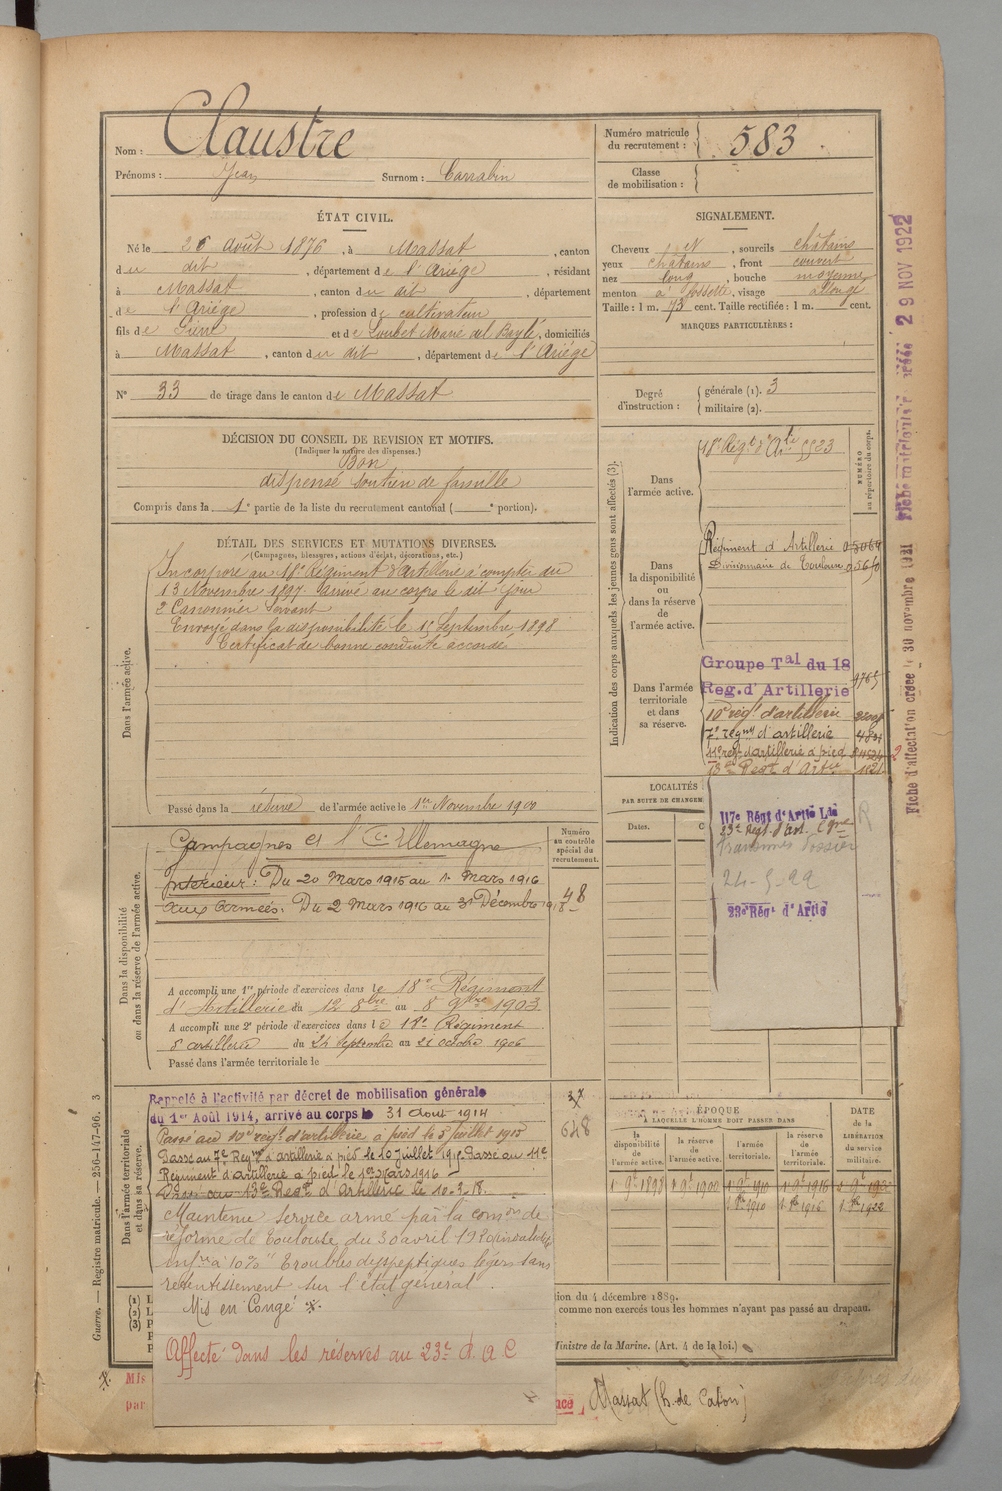 Nom : Claustre
Prénoms : Jean Surnom : Carrabin
Numéro matricule du recrutement : 583
Classe de mobilisation :
ÉTAT CIVIL.
Né le 26 août 1876, à Massat, canton
du dit, département de l'Ariége, résidant
à Massat, canton du dit, département
de l'Ariége, profession de cultivateur
fils de Pierre et de Loubet Marie del Baylé, domiciliés
à Massat, canton du dit, département de l'Ariége
N° 33 de tirage dans le canton de Massat
SIGNALEMENT.
Cheveux, sourcils châtains
yeux châtains, front couvert
nez long, bouche moyenne
menton à fossette, visage allongé
Taille : 1 m. 73 cent. Taille rectifiée : 1 m. cent.
MARQUES PARTICULIÈRES :
Degré d'instruction : générale (1). 3
militaire (2).
DÉCISION DU CONSEIL DE REVISION ET MOTIFS.
(Indiquer la nature des dispenses.)
Bon
dispensé soutien de famille
Compris dans la 1e partie de la liste du recrutement cantonal ( e portion).
DÉTAIL DES SERVICES ET MUTATIONS DIVERSES.
(Campagnes, blessures, actions d'éclat, décorations, etc.)
Dans l'armée active.
Incorporé au 18e Régiment d'artillerie à compter du
13 Novembre 1897. arrivé au corps le dit jour
2e Canonnier Servant
Envoyé dans la disponibilité le 15 Septembre 1898
Certificat de bonne conduite accordé
Passé dans la réserve de l'armée active le 1er Novembre 1900
Dans la disponibilité ou dans la réserve de l'armée active.
Numéro au contrôle spécial du recrutement.
Campagnes et l' Allemagne
Intérieur : Du 20 Mars 1915 au 1 Mars 1916
aux armées : Du 2 Mars 1916 au 31 Décembre 1918
48
A accompli une 1re période d'exercices dans le 18e Régiment
d'Artillerie du 12 8bre au 8 9bre 1903
A accompli une 2e période d'exercices dans le 18e Régiment
d'artillerie du 24 Septembre au 21 octobre 1906
Passé dans l'armée territoriale le
Dans l'armée territoriale et dans sa réserve.
Rappelé à l'activité par décret de mobilisation générale
du 1er Août 1914, arrivé au corps le 31 Aout 1914
Passé au 10e régt d'artillerie à pied le 5 juillet 1915
Passé au 7e Régmt d'artillerie à pied le 10 juillet 1915 Passé au 11e
Régiment d'artillerie à pied le 1er Mars 1916
Passé au 13e Régt d'Artillerie le 10.3.18.
Maintenu service armé par la comon de
réforme de Toulouse du 30 avril 1920 invalidité
infre à 10% "troubles dyspeptiques légers sans
retentissement sur l'état général.
Mis en Congé
Affecté dans les réserves au 23e d. A C
37
648
Indication des corps auxquels les jeunes gens sont affectés (3).
NUMÉRO au répertoire du corps.
Dans l'armée active.
18e Régt d'Artie 5523
Dans la disponibilité ou dans la réserve de l'armée active.
Régiment d'Artillerie 05064
Divisionnaire de Toulouse 05640
Dans l'armée territoriale et dans sa réserve.
Groupe Tal du 18
Reg. d'Artillerie
10e régt d'artillerie
7e régmt d'artillerie
11e régt d'artillerie à pied
13e Régt d'Artie
LOCALITÉS
PAR SUITE DE CHANGEM
Dates.
117e Régt d'Artie Lde
23e Régt d'art. Cgne
Transmis Dossier
24-5-22
23e Régt d'Artie
ÉPOQUE
A LAQUELLE L'HOMME DOIT PASSER DANS
la disponibilité de l'armée active.
la réserve de l'armée active.
l'armée territoriale.
la réserve de l'armée territoriale.
DATE DE LA LIBÉRATION DU service militaire.
1 9e 1898 1 9e 1900 1 9e 1910 1 9e 1916
1. 8bre 1910 1. 8bre 1916 1. 8bre 1922
tion du 4 décembre 1889.
comme non exercés tous les hommes n'ayant pas passé au drapeau.
Ministre de la Marine. (Art. 4 de la loi.)
Mis
par
Massat (h. de Caton)
Guerre. — Registre matricule. — 256-147-96. 3
Fiche d'affectation créée le 30 novembre 1921
29 NOV 1922